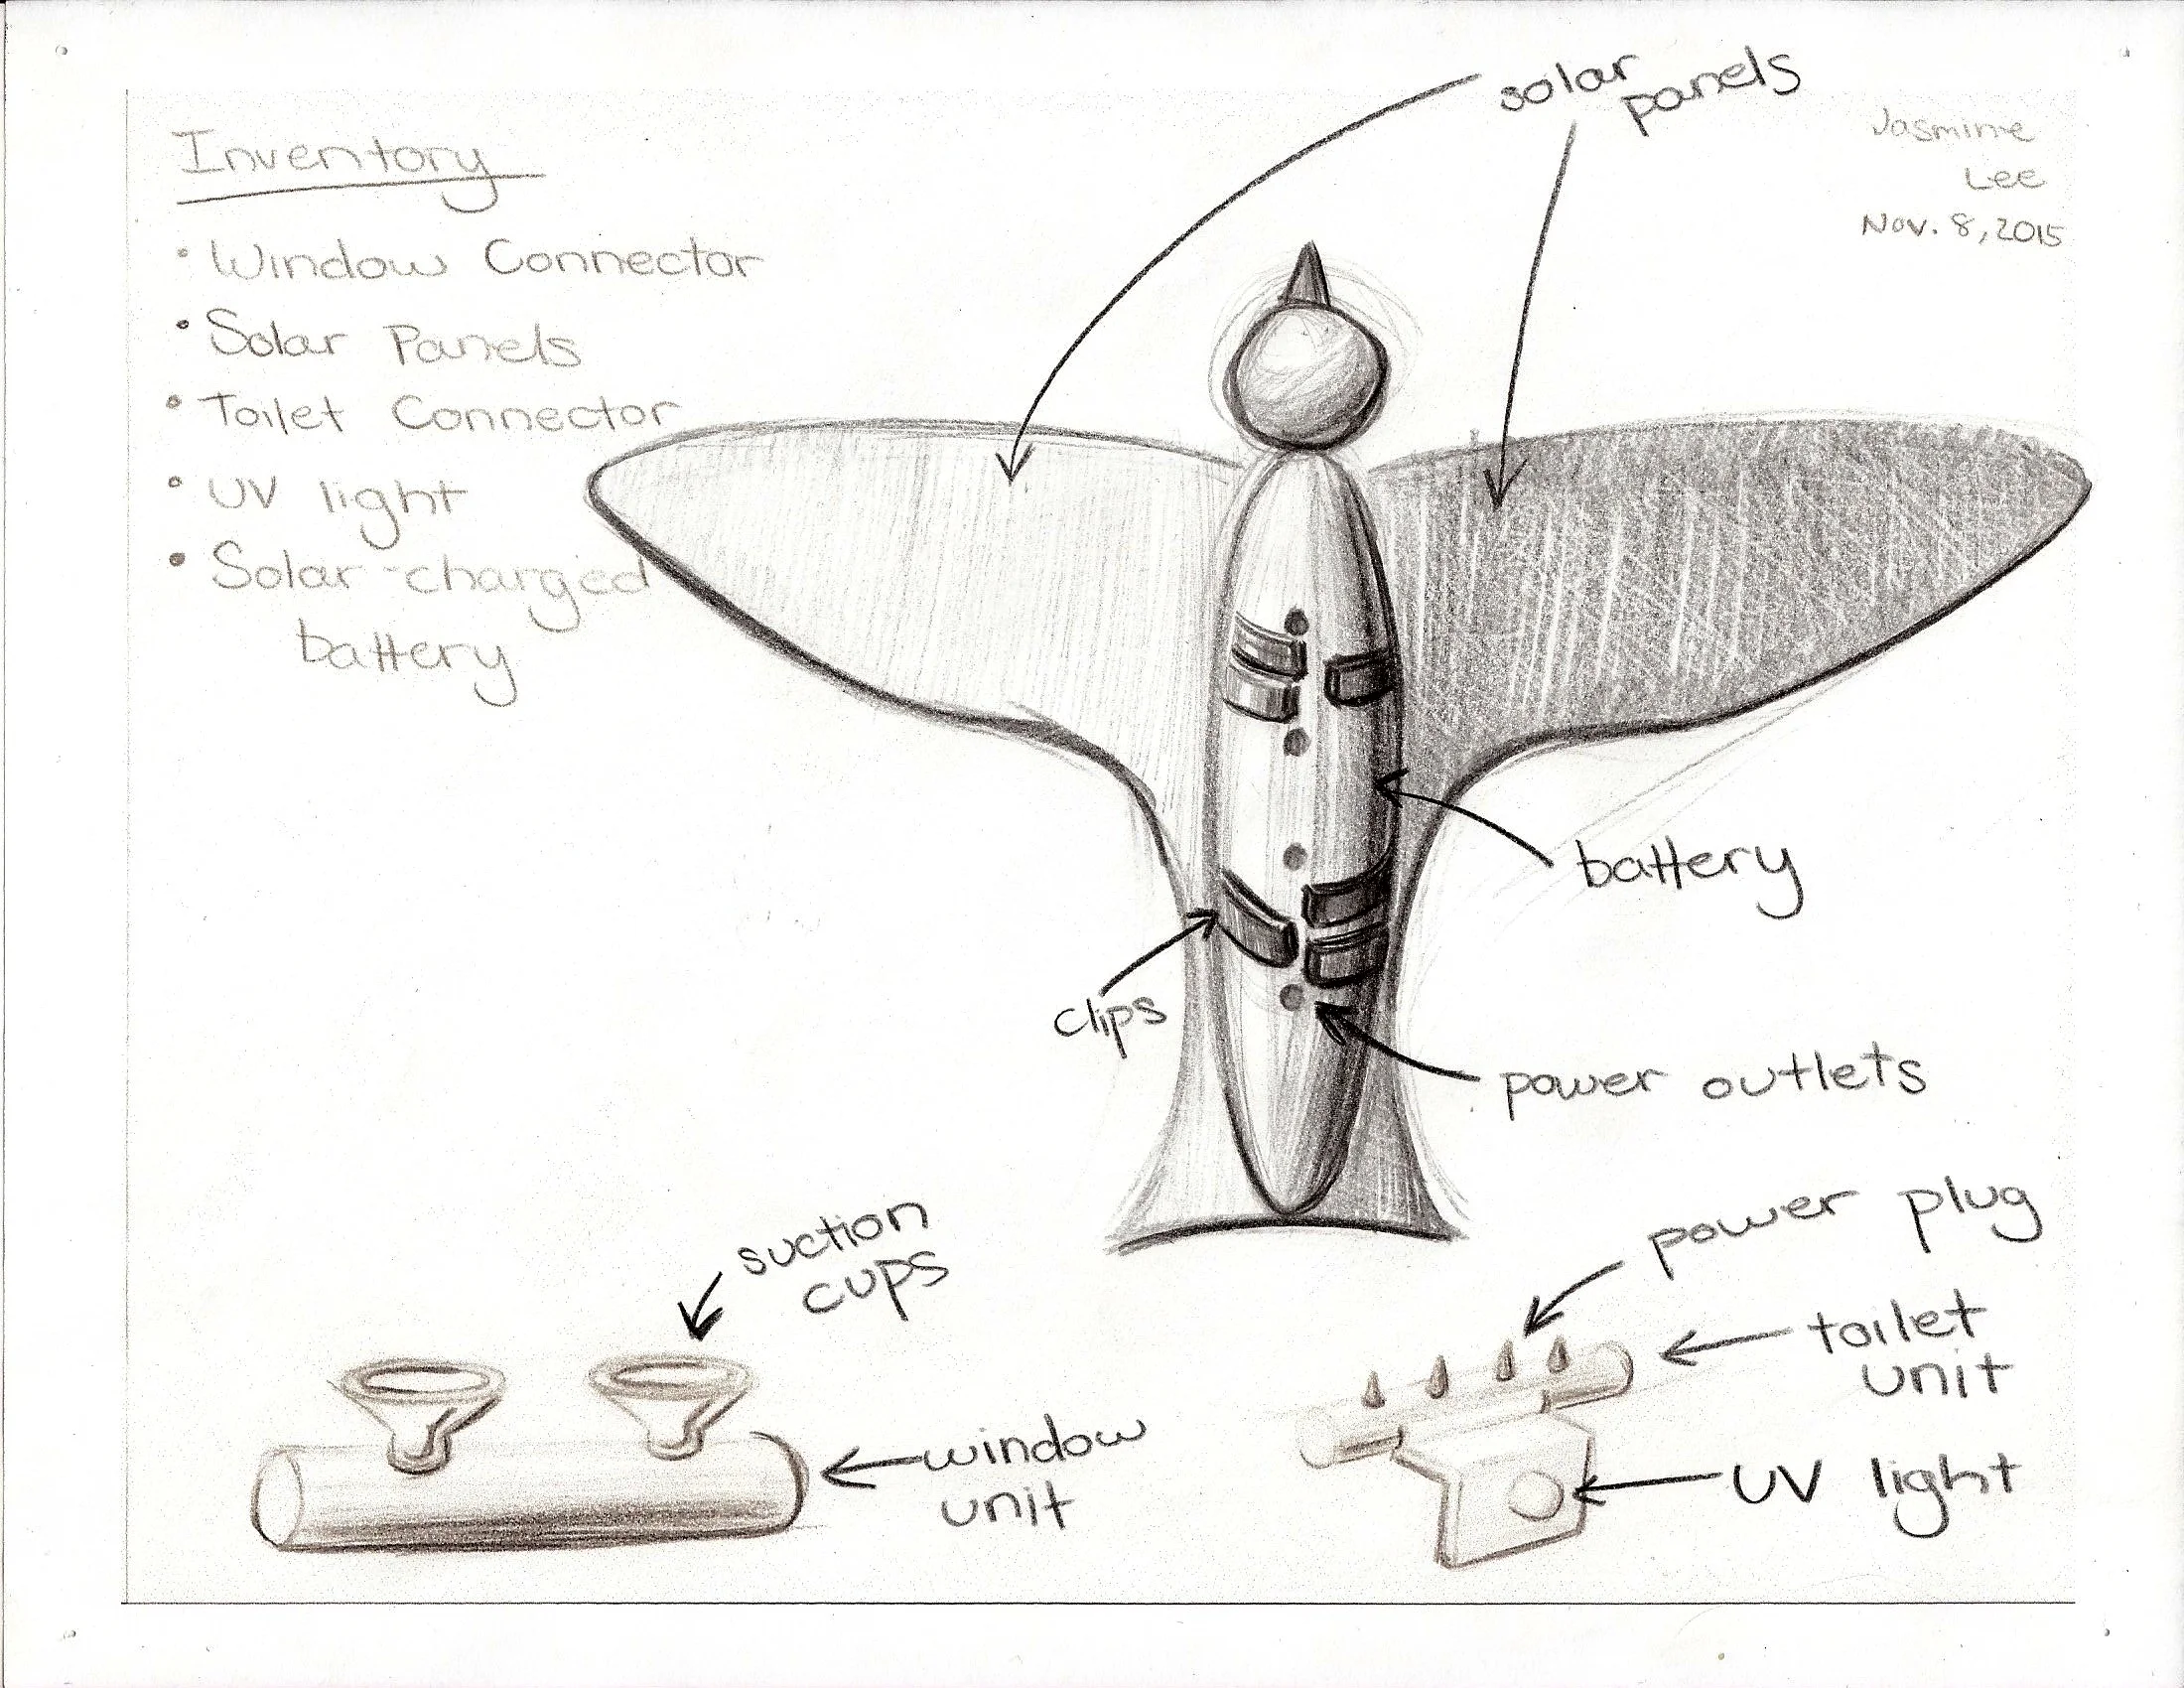 Inventory
• Window Connector
• Solar Panels
• Toilet Connector
• UV light
• Solar-charged
battery
solar
panels
Jasmine
Lee
Nov. 8, 2015
battery
clips
power outlets
suction
cups
window
unit
power plug
toilet
unit
UV light